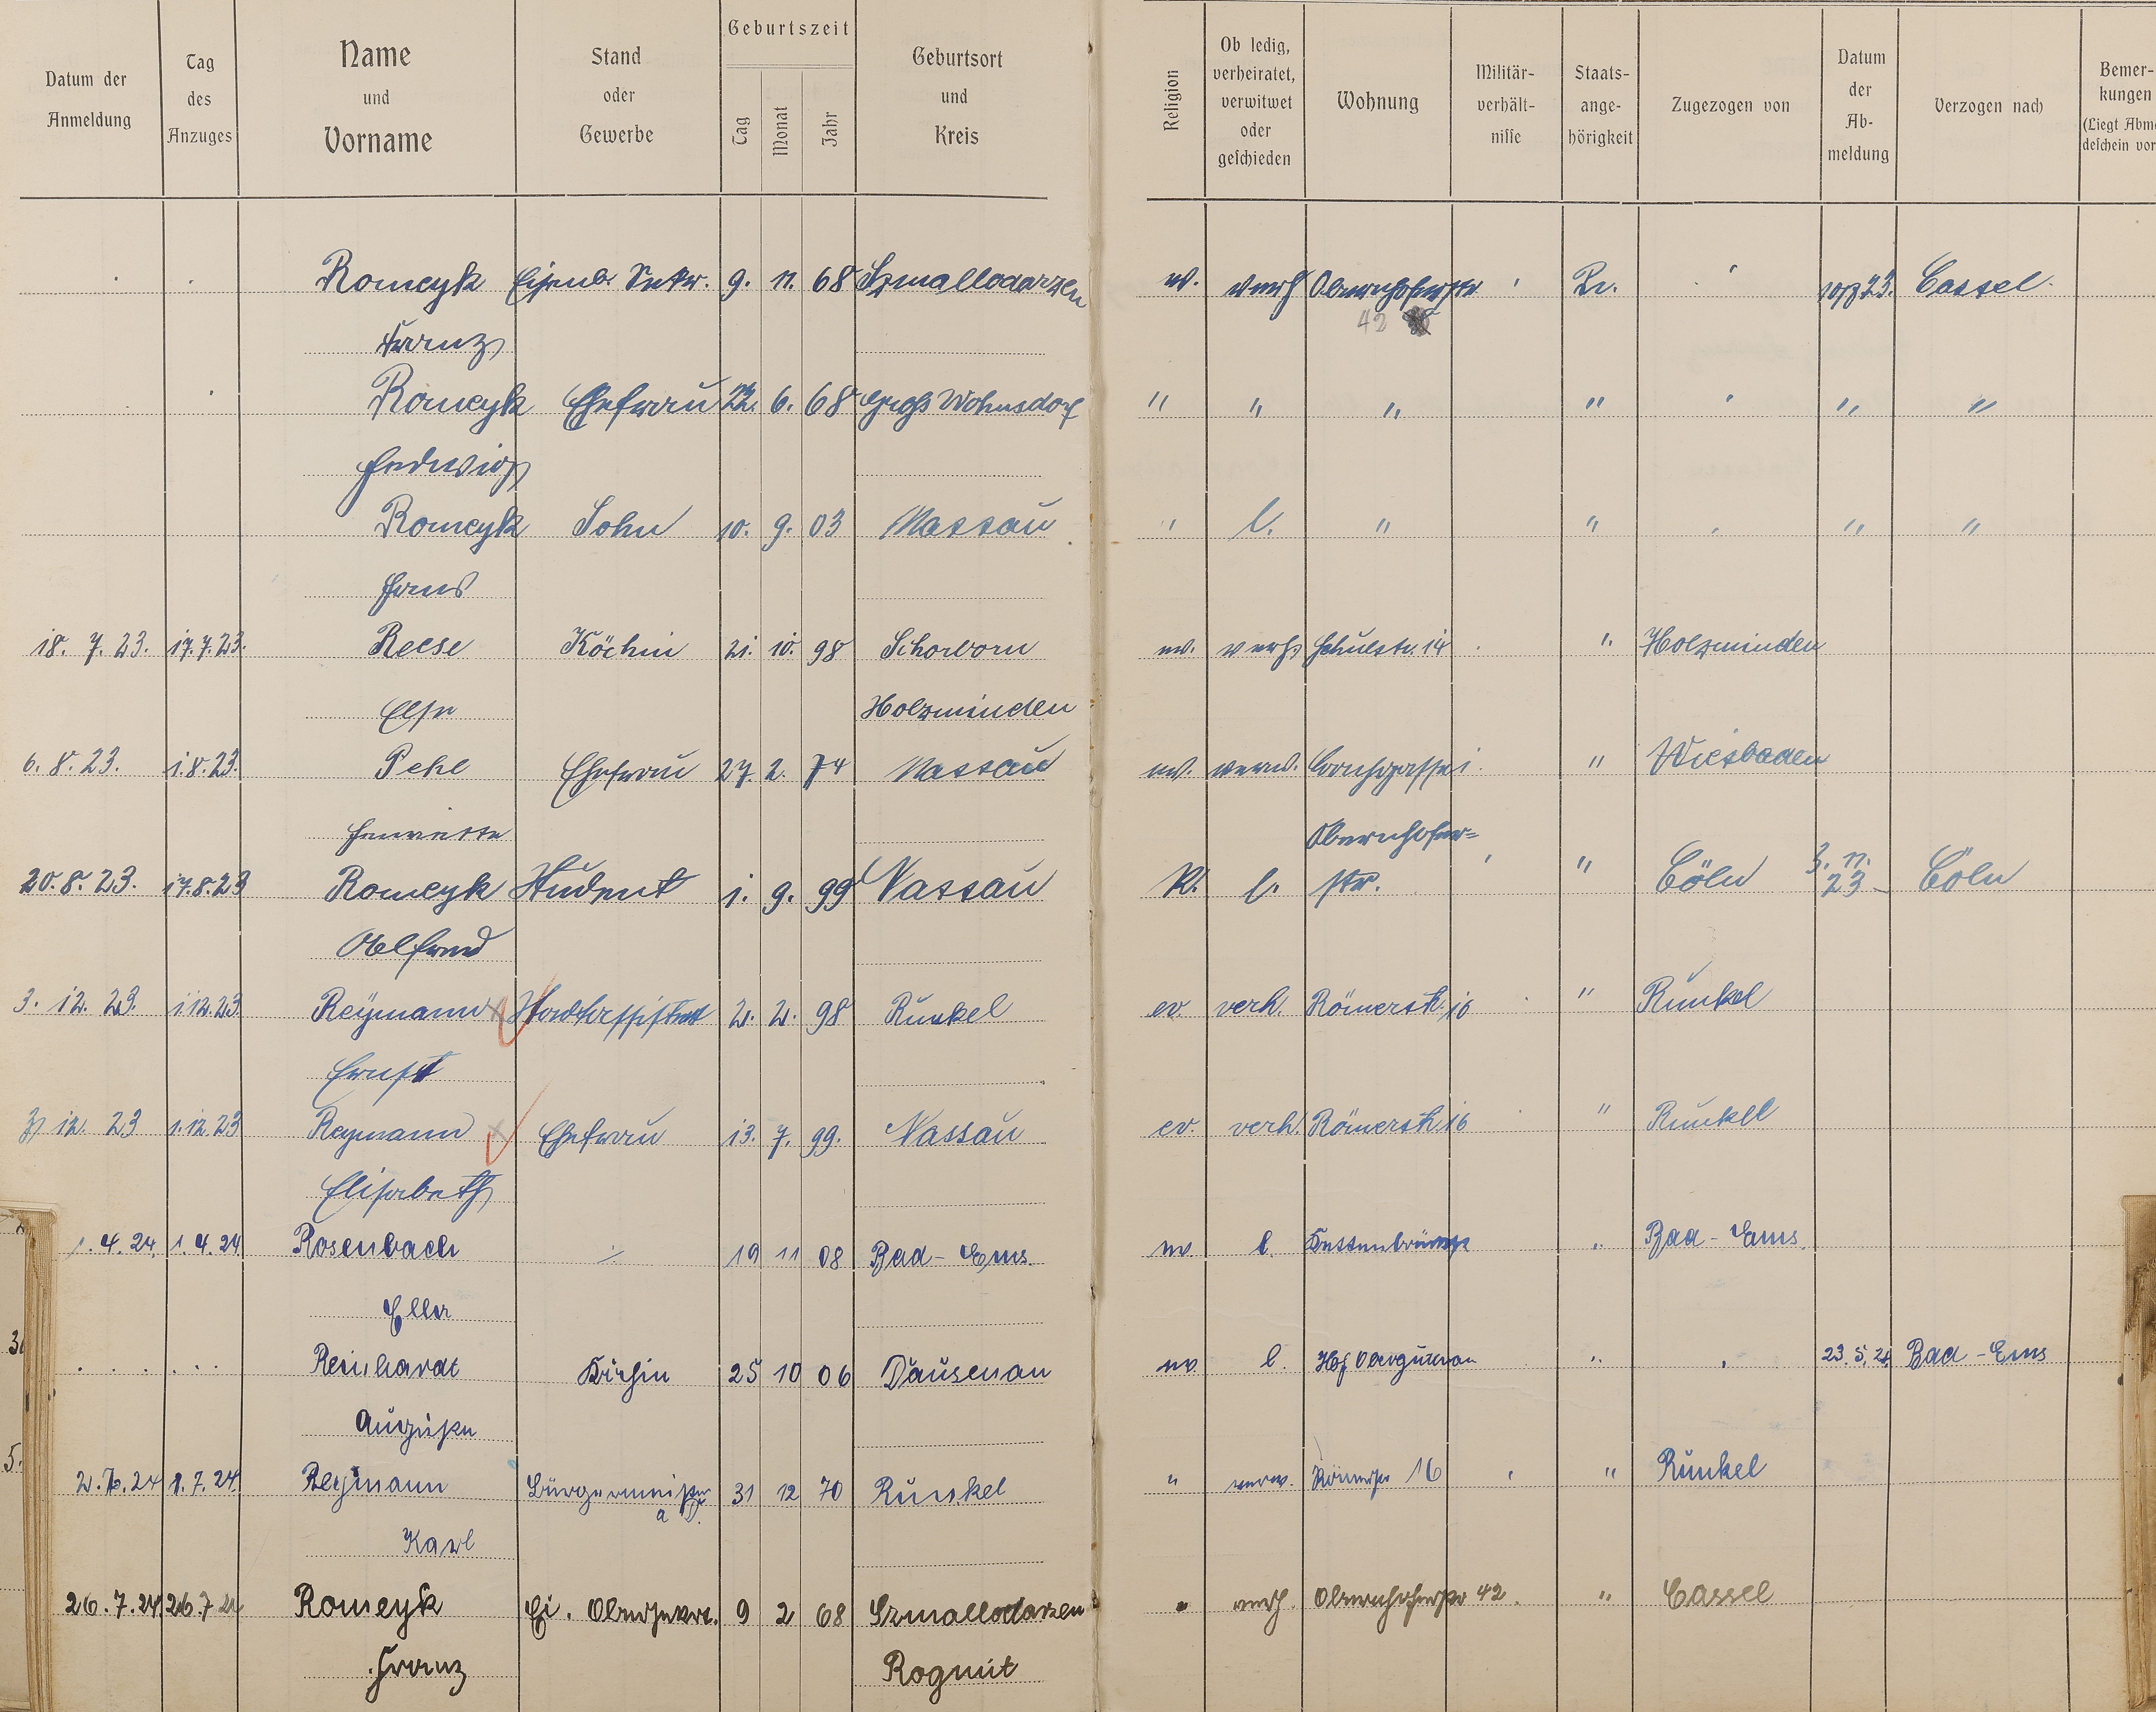 Datum der Anmeldung | Tag des Anzuges | Name und Vorname | Stand oder Gewerbe | Geburtszeit Tag Monat Jahr | Geburtsort und Kreis | Religion | Ob ledig, verheiratet, verwitwet oder geschieden | Wohnung | Militär-verhält-nisse | Staats-ange-hörigkeit | Zugezogen von | Datum der Ab-meldung | Verzogen nach | Bemer-kungen (Liegt Abm deschein vor
Romeyk Eisenb. Sekr. 9. 11. 68 Szmallodarzen ev. verh Obernhoferstr Pr. 23. Cassel
Franz 42
Romeyk Ehefrau 22. 6. 68 Groß Wohnsdorf " " " " " "
Hedwig
Romeyk Sohn 10. 9. 03 Nassau " l. " " " "
Hans
18. 7. 23. 17.7.23. Reese Köchin 21. 10. 98 Schorborn ev. verh Schulstr. 14 " Holzminden
Else Holzminden
6. 8. 23. 1.8.23. Pehl Ehefrau 27. 2. 74 Nassau ev. verw. 1. " Wiesbaden
Henriette Obernhofer=
20. 8. 23. 17.8.23 Romeyk Student 1. 9. 99 Nassau K. l. str. " Cöln 3. 11. 23 Cöln
Alfred
3. 12. 23. 1.12.23. Reymann Stadtassistent 2. 2. 98 Runkel ev verh. Römerstr. 16 " Runkel
Ernst
3. 12. 23 1.12.23 Reymann Ehefrau 13. 7. 99. Nassau ev. verh. Römerstr. 16 " Runkel
Elisabeth
1. 4. 24. 1. 4. 24. Rosenbach 19 11 08 Bad-Ems. ev. l. Kettenbrücke " Bad-Ems.
Ella
Reinhardt Köchin 25 10 06 Dausenau ev. l. Hof " 23. 5. 24. Bad-Ems
Auguste
2.7.24 1.7.24. Reymann Bürgermeister a D. 31 12 70 Runkel " verw. Römerstr 16 " Runkel
Karl
26. 7. 24 26.7 24 Romeyk Ei. Obersekret. 9 2 68 Szmallodarzen " verh. Obernhoferstr 42. " Cassel
Franz Ragnit